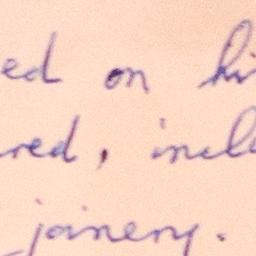 ed on hi
red, incl
joinery.